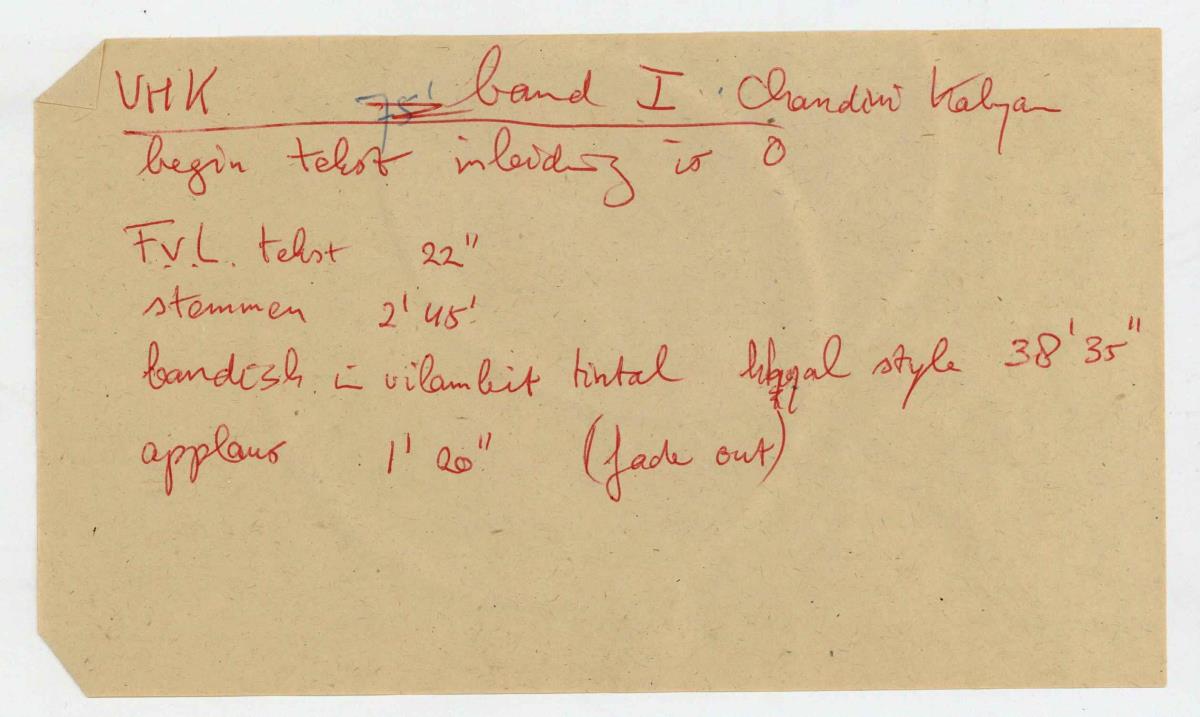 VHK 75' band I Chandini Kalyan
begin tekst inleiding is 0
F.v.L. tekst 22"
stemmen 2' 45'
bandish in vilambit tintal khyal style 38' 35"
applaus 1' 20" (fade out)